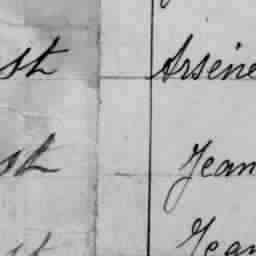 st Arsène
st Jean
st Jean